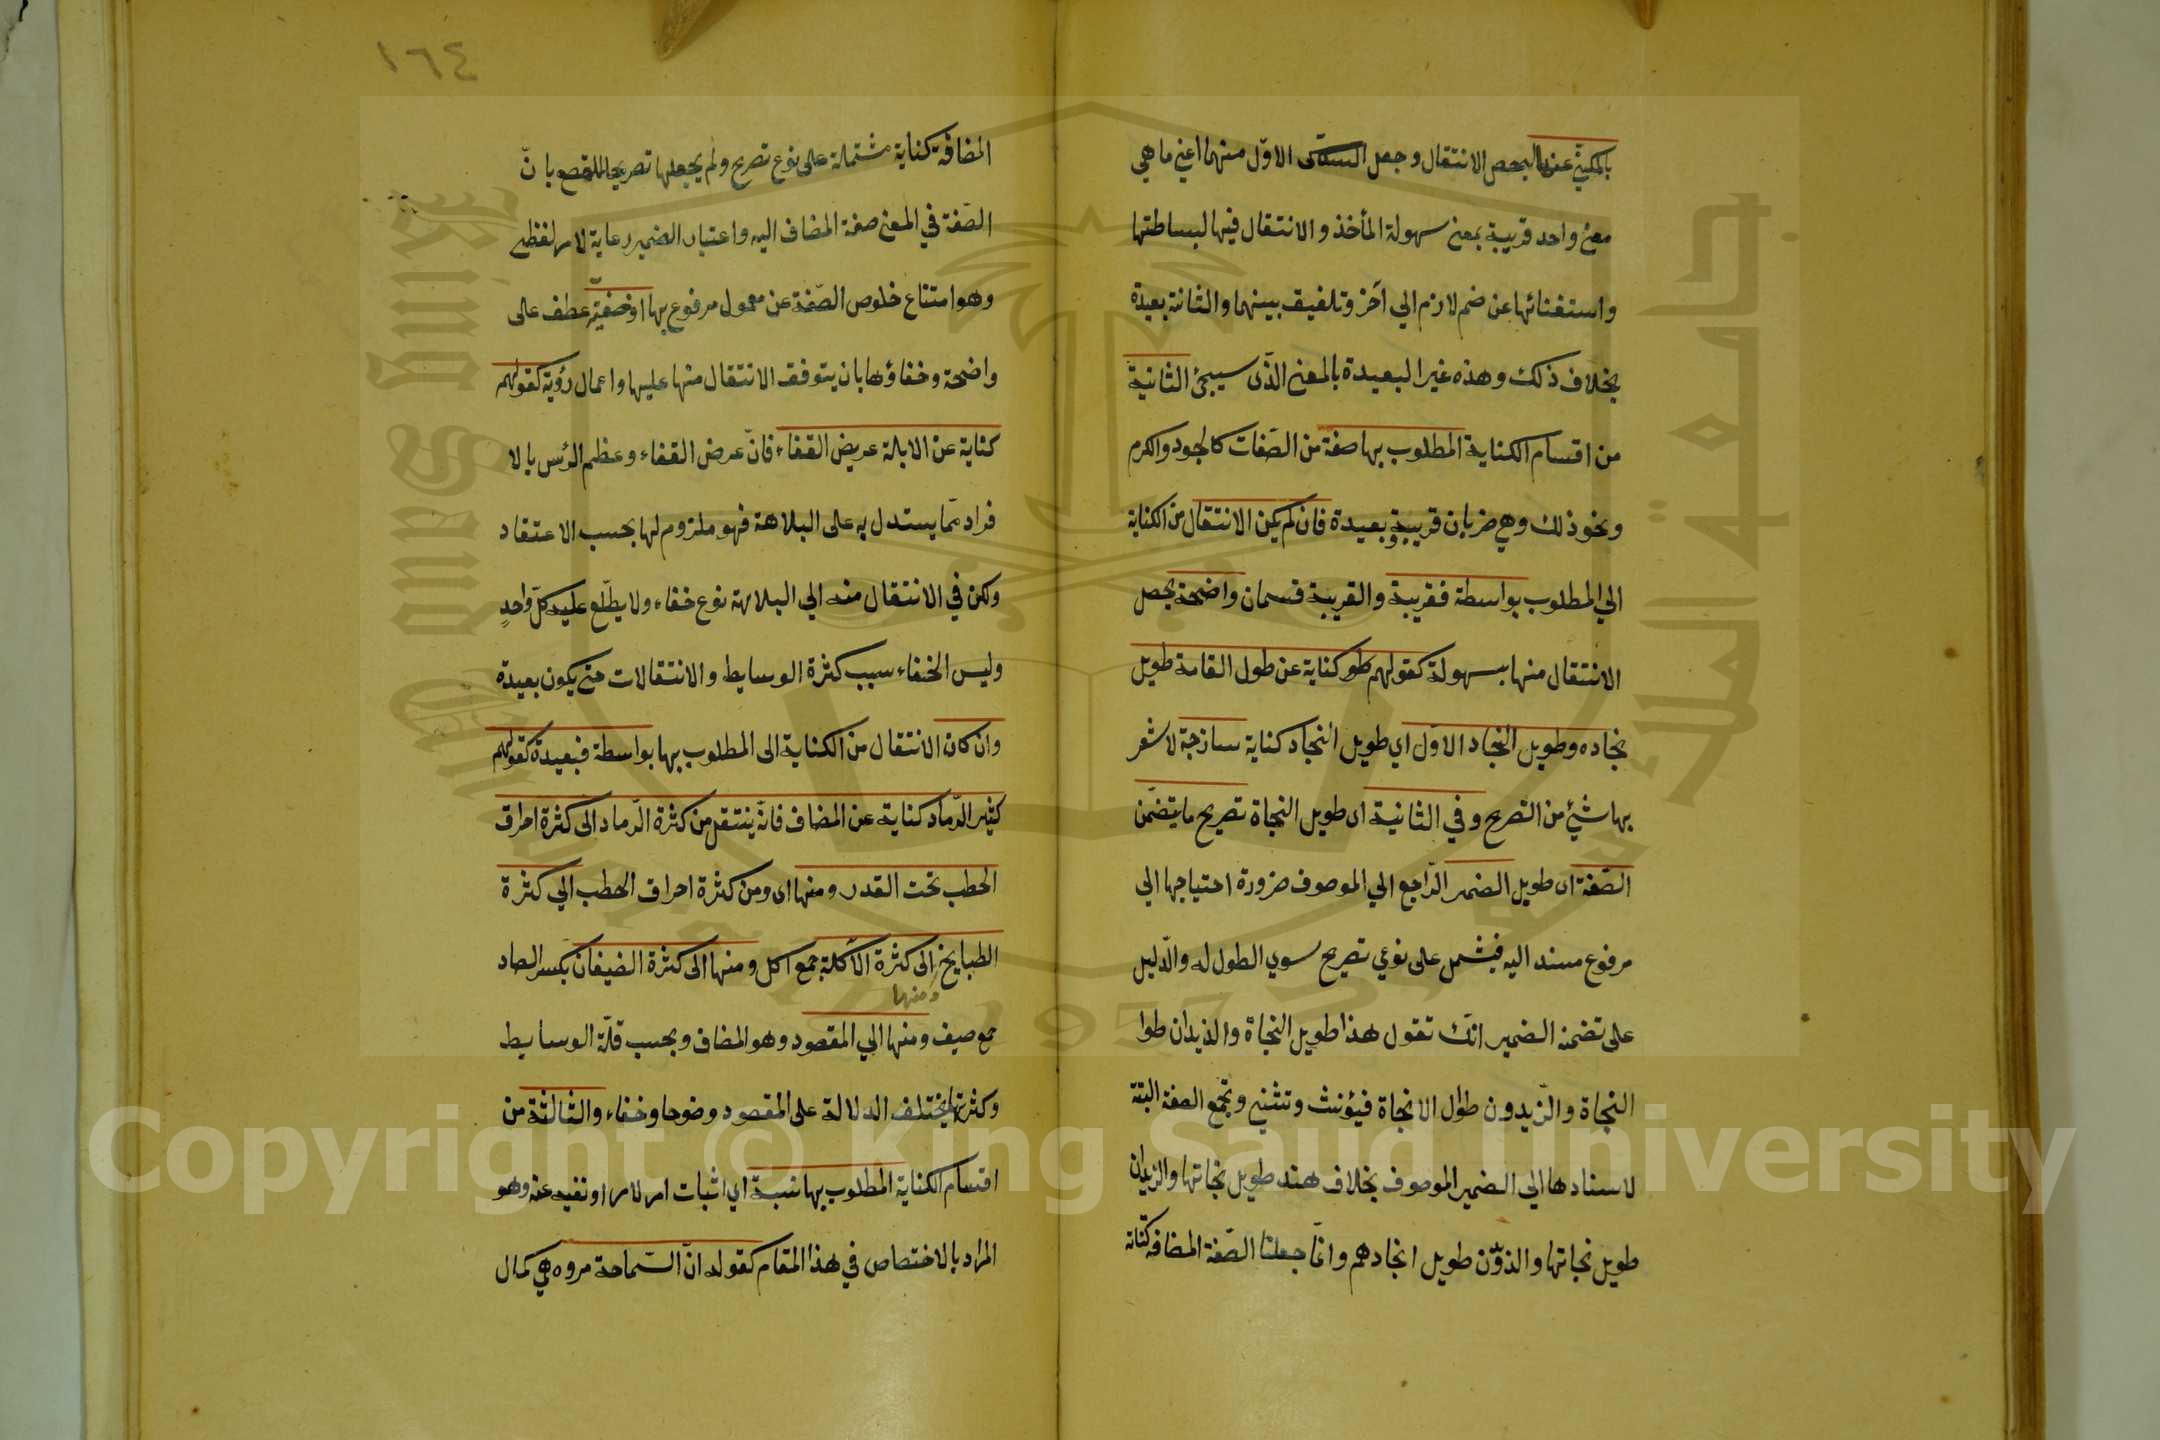 بالمكنيّ عنها ليحصل الانتقال وجعل السكاكى الاوّل منهما اعني ما هي
معنى واحد قريبة بمعنى سهولة المأخذ والانتقال فيها لبساطتها
واستغنائها عن ضم لازم الي آخر وتلفيق بينهما والثانية بعيدة
بخلاف ذلك وهذه غير البعيدة بالمعنى الذّى سيجئ الثانية
من اقسام الكناية المطلوب بها صفة من الصّفات كالجود والكرم
ونحو ذلك وهي ضربان قريبة وبعيدة فان لم يكن الانتقال من الكناية
الي المطلوب بواسطة فقريبة والقريبة قسمان واضحة يحصل
الانتقال منها بسهولة كقولهم طو كناية عن طول القامة طويل
نجاده وطويل النجاد الاوّل اي طويل النجاد كناية سازجة لاشعر
بها شئ من التصريح وفي الثانية اى طويل النجاة تصريح ما يتضمّن
الصّفة اى طويل الضمير الرّاجع الي الموصوف ضرورة احتياجها الي
مرفوع مسند اليه فيشمل على نوي تصريح سوي الطول له والدّليل
على تضمنه الضمير انّك تقول هذا طويل النجاة والذيدان طوا
النجاة والزّيدون طوال الانجاة فيؤنث وتثني وتجمع الصفة البتة
لاسنادها الي الضمير الموصوف بخلاف هند طويل نجاتها والزيدان
طويل نجاتها والذوّن طويل انجادهم وانّما جعلنا الصّفة المضافه كناية
١٦٤
المضافة كناية مشتملة على نوع تصريح ولم يجعلها تصريحا للقصع بانّ
الصّفة في المعنى صفة المضاف اليه واعتبار الضمير رعاية لامر لفظي
وهو امتناع خلوص الصّفة عن معمول مرفوع بها او خفيّة عطف على
واضحة وخفاؤها بان يتوقف الانتقال منها عليها واعمال رؤية كقولهم
كناية عن الابلة عريض القفاء فانّ عرض القفاء وعظم الرئس بالا
فراد ممّا يستدل به على البلاهة فهو ملزوم لها بحسب الاعتقاد
ولكن في الانتقال منه الي البلاهة نوع خفاء ولا يطّلع عليه كلّ واحدٍ
وليس الخفاء سبب كثرة الوسايط والانتقالات حتى يكون بعيدة
وان كان الانتقال من الكناية الى المطلوب بها بواسطة فبعيدة كقولهم
كثير الرّماد كناية عن المضاف فانّه ينتقل من كثرة الرّماد الى كثرة احراق
الحطب تحت القدر ومنها اى ومن كثرة احراق الحطب الي كثرة
الطبايخ الى كثرة الآكلة جمع اكل ومنها الى كثرة الضيفان بكسر الصاد
ومنها
جمع صيف ومنها الي المقصود وهو المضاف وبحسب قلّة الوسايط
وكثرتها يختلف الدلالة على المقصود وضوحا وخفاء والثالثة من
اقسام الكناية المطلوب بها نسبة اي اثبات امر لامر او نفيه عنه وهو
المراد بالاختصاص في هذا المقام كقوله انّ السّماحة مروه هي كمال
Copyright © King Saud University
جامعة الملك سعود
King Saud University
1957